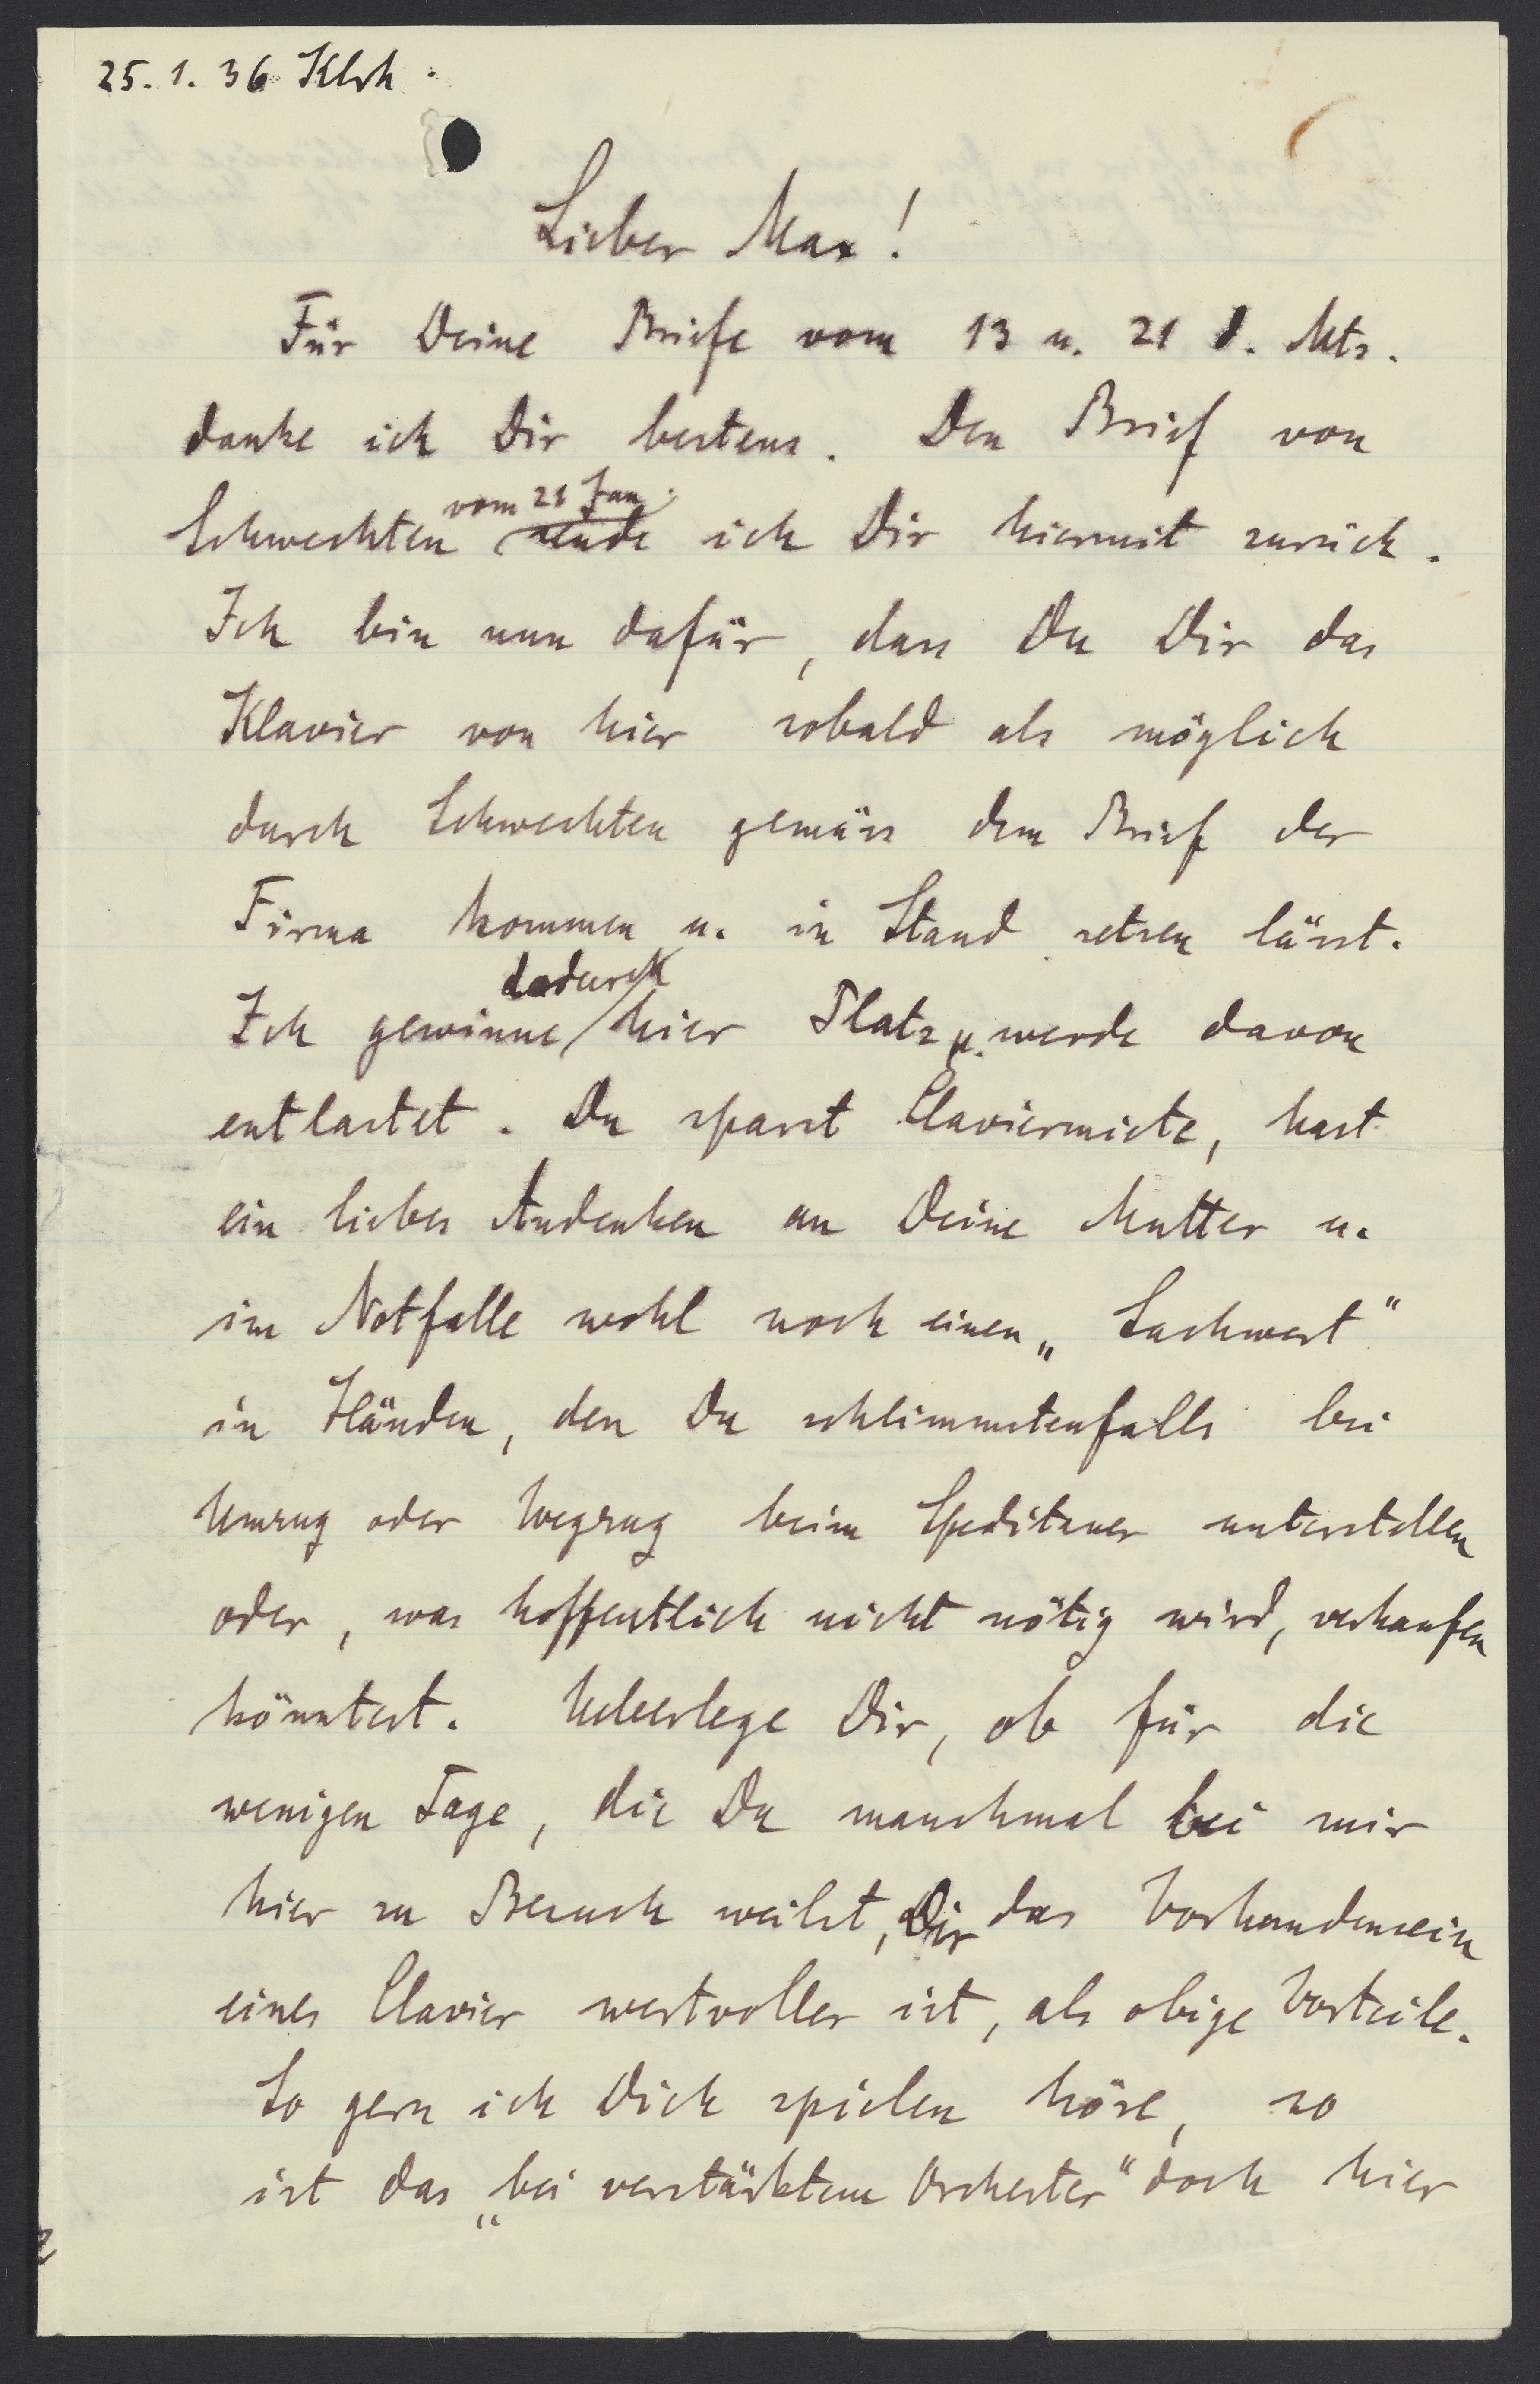 25. 1. 36 Klrh.
Lieber Max!
Für Deine Briefe vom 13 u. 21 d. Mts.
danke ich Dir bestens. Den Brief von
vom 21 Jan.
Schwechten sende ich Dir hiermit zurück.
Ich bin nun dafür, dass Du Dir das
Klavier von hier sobald als möglich
durch Schwechten gemäss dem Brief der
Firma kommen u. in Stand setzen lässt.
dadurch
Ich gewinne hier Platz u. werde davon
entlastet. Du sparst Claviermiete, hast
ein liebes Andenken an Deine Mutter u.
im Notfalle wohl noch einen „Sachwert“
in Händen, den Du schlimmstenfalls bei
Umzug oder Wegzug beim Spediteuer unterstellen
oder, was hoffentlich nicht nötig wird, verkaufen
könntest. Ueberlege Dir, ob für die
wenigen Tage, die Du manchmal bei mir
hier zu Besuch weilst, Dir das Vorhandensein
eines Clavier wertvoller ist, als obige Vorteile.
So gern ich Dich spielen höre, so
ist das „bei verstärktem Orchester“ doch hier